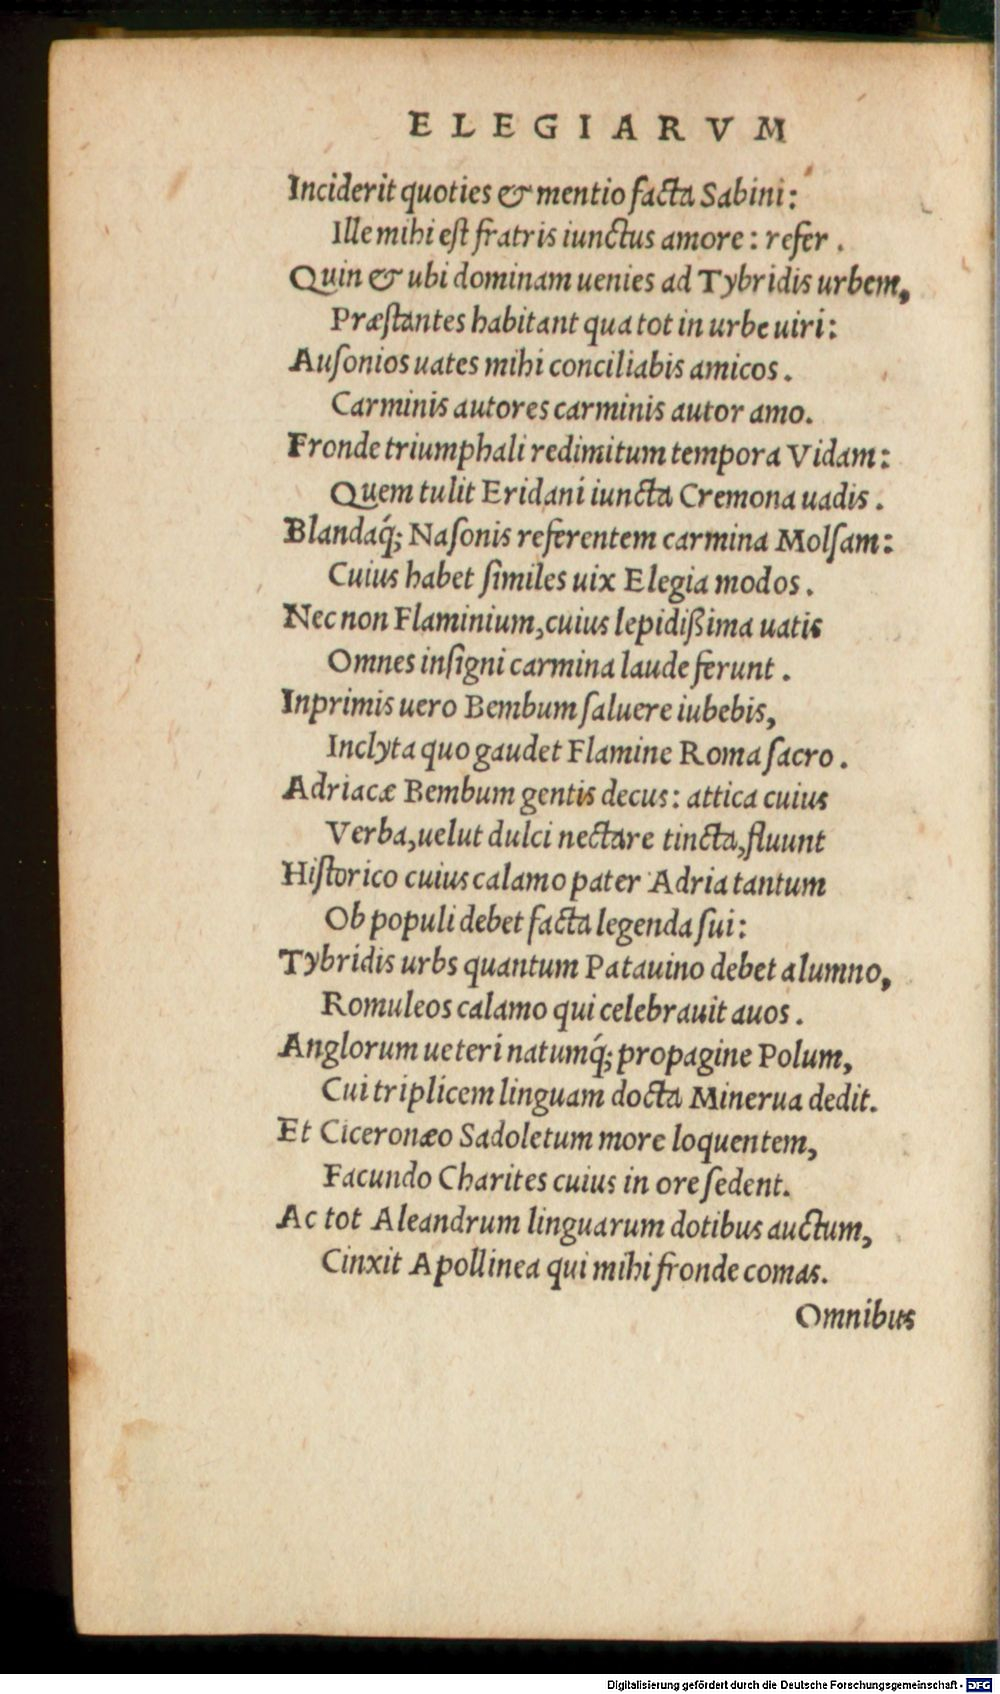 ELEGIARVM
Inciderit quoties & mentio facta Sabini:
Ille mihi eſt fratris iunctus amore: refer.
Quin & ubi dominam uenies ad Tybridis urbem,
Præſtantes habitant qua tot in urbe uiri:
Auſonios uates mihi conciliabis amicos.
Carminis autores carminis autor amo.
Fronde triumphali redimitum tempora Vidam:
Quem tulit Eridani iuncta Cremona uadis.
Blandaq́; Naſonis referentem carmina Molſam:
Cuius habet ſimiles uix Elegia modos.
Nec non Flaminium, cuius lepidißima uatis
Omnes inſigni carmina laude ferunt.
Inprimis uero Bembum ſaluere iubebis,
Inclyta quo gaudet Flamine Roma ſacro.
Adriacæ Bembum gentis decus: attica cuius
Verba, uelut dulci nectare tincta, fluunt
Hiſtorico cuius calamo pater Adria tantum
Ob populi debet facta legenda ſui:
Tybridis urbs quantum Patauino debet alumno,
Romuleos calamo qui celebrauit auos.
Anglorum ueteri natumq́; propagine Polum,
Cui triplicem linguam docta Minerua dedit.
Et Ciceronæo Sadoletum more loquentem,
Facundo Charites cuius in ore ſedent.
Ac tot Aleandrum linguarum dotibus auctum,
Cinxit Apollinea qui mihi fronde comas.
Omnibus
Digitalisierung gefördert durch die Deutsche Forschungsgemeinschaft - DFG